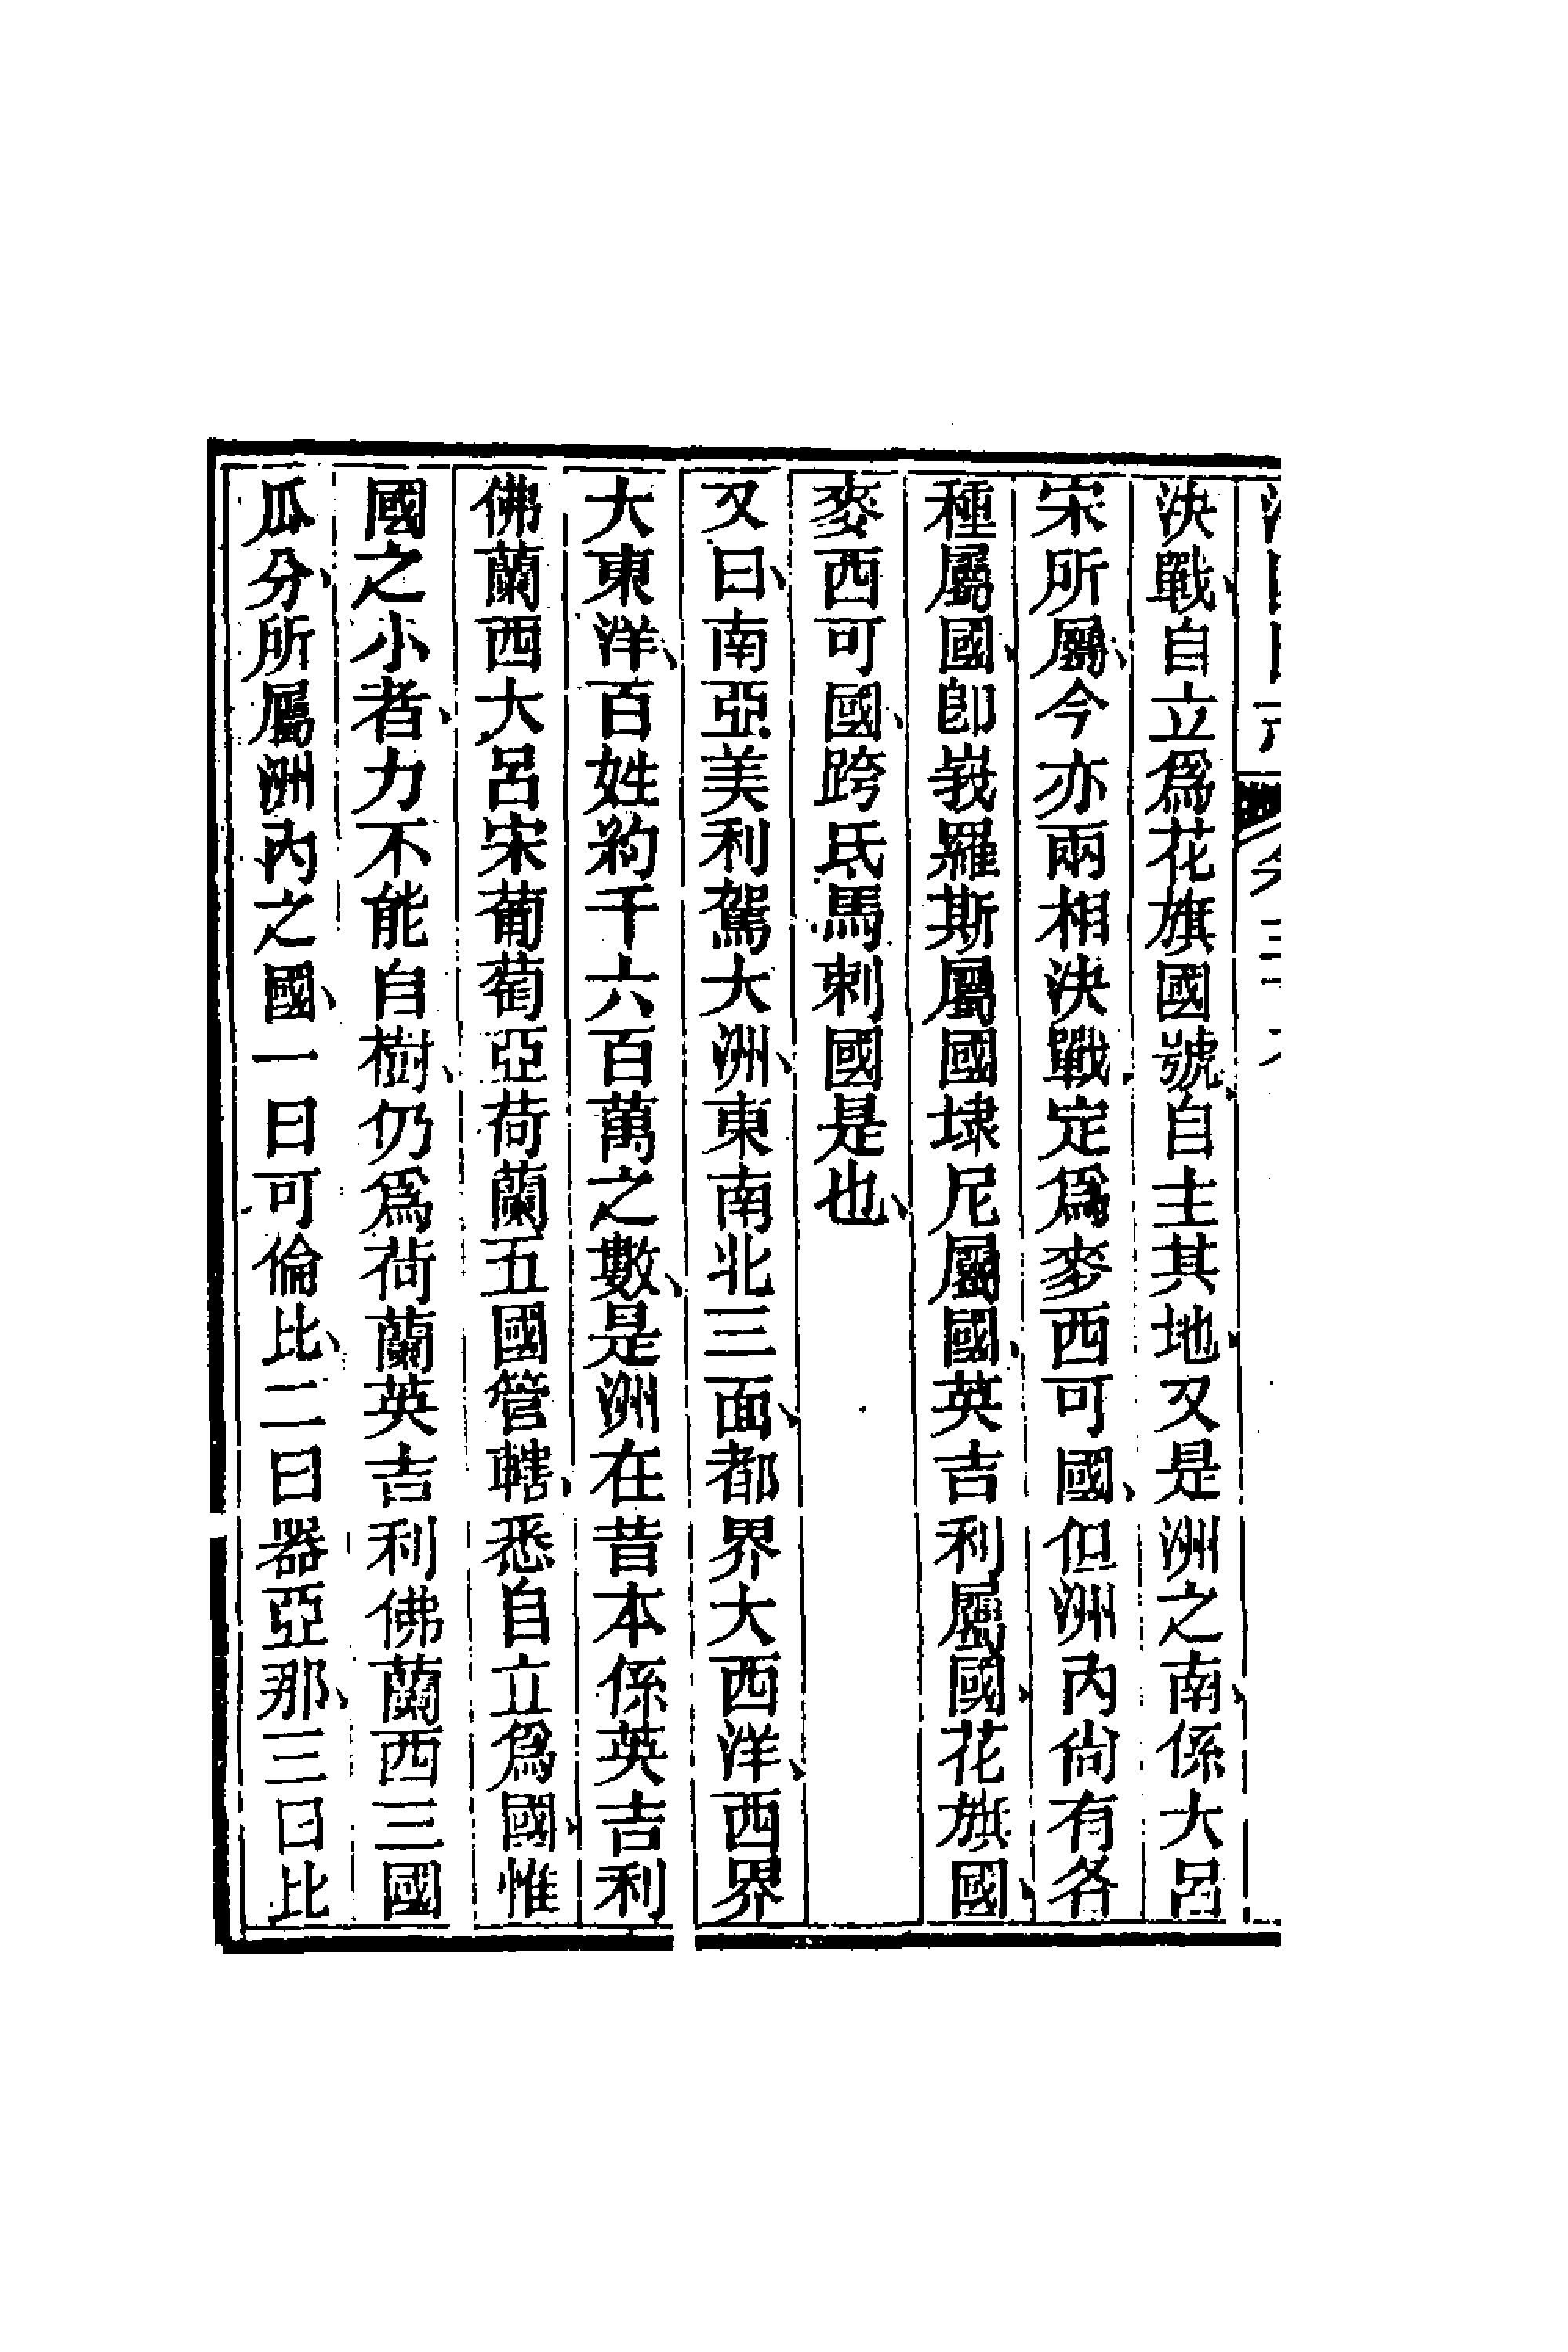 決戰、自立爲花旗國號、自主其地、又是洲之南、係大呂
宋所屬、今亦兩相決戰、定爲麥西可國、但洲內尙有各
種屬國、卽峩羅斯屬國埭尼屬國、英吉利屬國、花旗國、
麥西可國、跨氐馬剌國是也、
又曰、南亞美利駕大洲、東南北三面、都界大西洋、西界
大東洋、百姓約千六百萬之數、是洲在昔本係英吉利
佛蘭西大呂宋葡萄亞荷蘭五國管轄、悉自立爲國、惟
國之小者、力不能自樹、仍爲荷蘭英吉利佛蘭西三國
瓜分、所屬洲內之國、一曰可倫比、二曰器亞那、三曰比